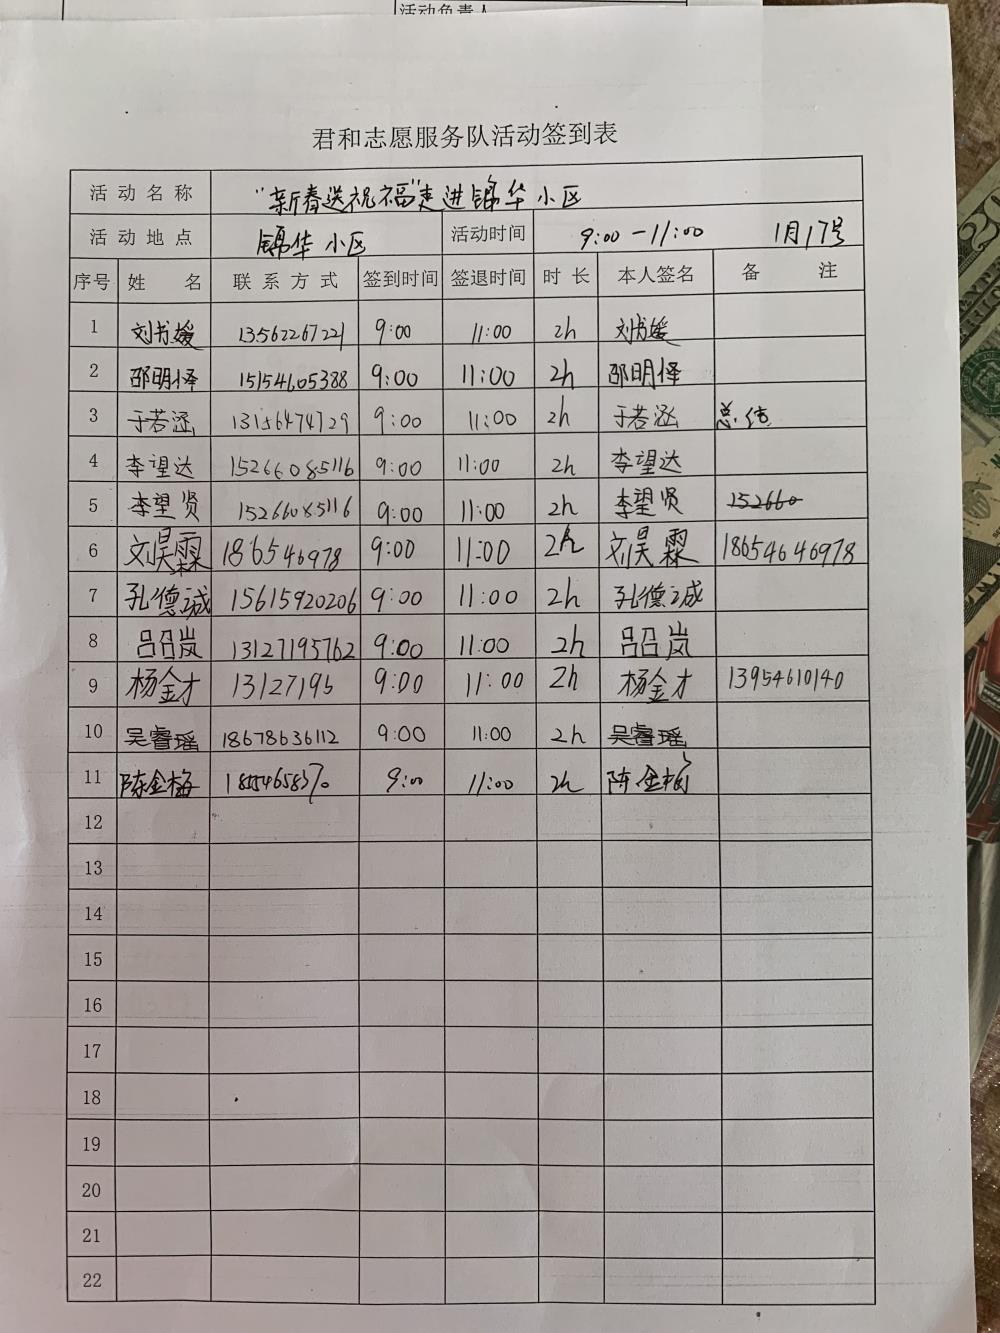 活动负责人
君和志愿服务队活动签到表
活动名称 "新春送祝福"走进锦华小区
活动地点 锦华小区 活动时间 9:00-11:00 1月17号
序号 姓名 联系方式 签到时间 签退时间 时长 本人签名 备注
1 刘书媛 13562267221 9:00 11:00 2h 刘书媛
2 邵明怿 15154605388 9:00 11:00 2h 邵明怿
3 于若涵 13156474729 9:00 11:00 2h 于若涵 总结
4 李望达 15266085116 9:00 11:00 2h 李望达
5 李望贤 15266085116 9:00 11:00 2h 李望贤 152660
6 文昊霖 186546978 9:00 11:00 2h 文昊霖 18654646978
7 孔德诚 15615920206 9:00 11:00 2h 孔德诚
8 吕召岚 13127195762 9:00 11:00 2h 吕召岚
9 杨金才 13127195 9:00 11:00 2h 杨金才 13954610140
10 吴睿瑶 18678636112 9:00 11:00 2h 吴睿瑶
11 陈金梅 9:00 11:00 2h 陈金梅
12
13
14
15
16
17
18
19
20
21
22